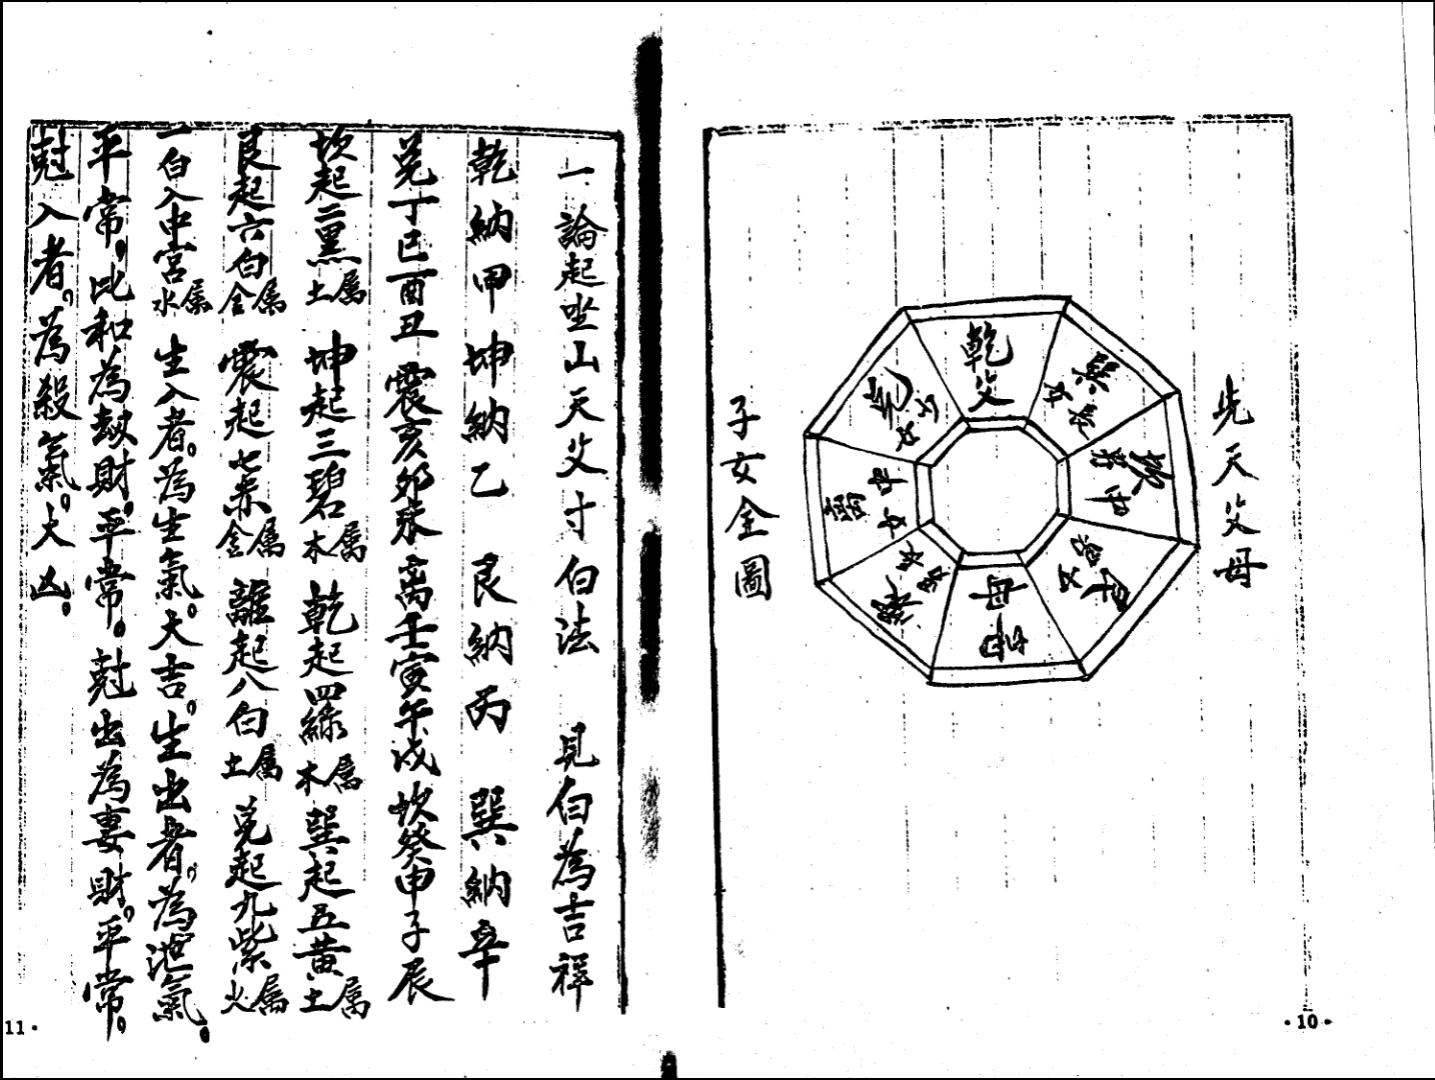 先天父母
子女全圖
乾父
巽長女
坎中男
艮少男
坤母
震長男
離中女
兌少女
·10·
一論起坐山天父寸白法 見白為吉祥
乾納甲坤納乙 艮納丙 巽納辛
兌丁巳酉丑 震亥卯 離壬寅午戌 坎癸申子辰
坎起二黑屬土 坤起三碧屬木 乾起四綠屬木 巽起五黃屬土
艮起六白屬金 震起七赤屬金 離起八白屬土 兌起九紫屬火
一白入中宮屬水 生入者。為生氣。大吉。生出者。為泄氣。
平常。比和為 財。平常。尅出為妻財。平常。
尅入者。為殺氣。大凶。
11·